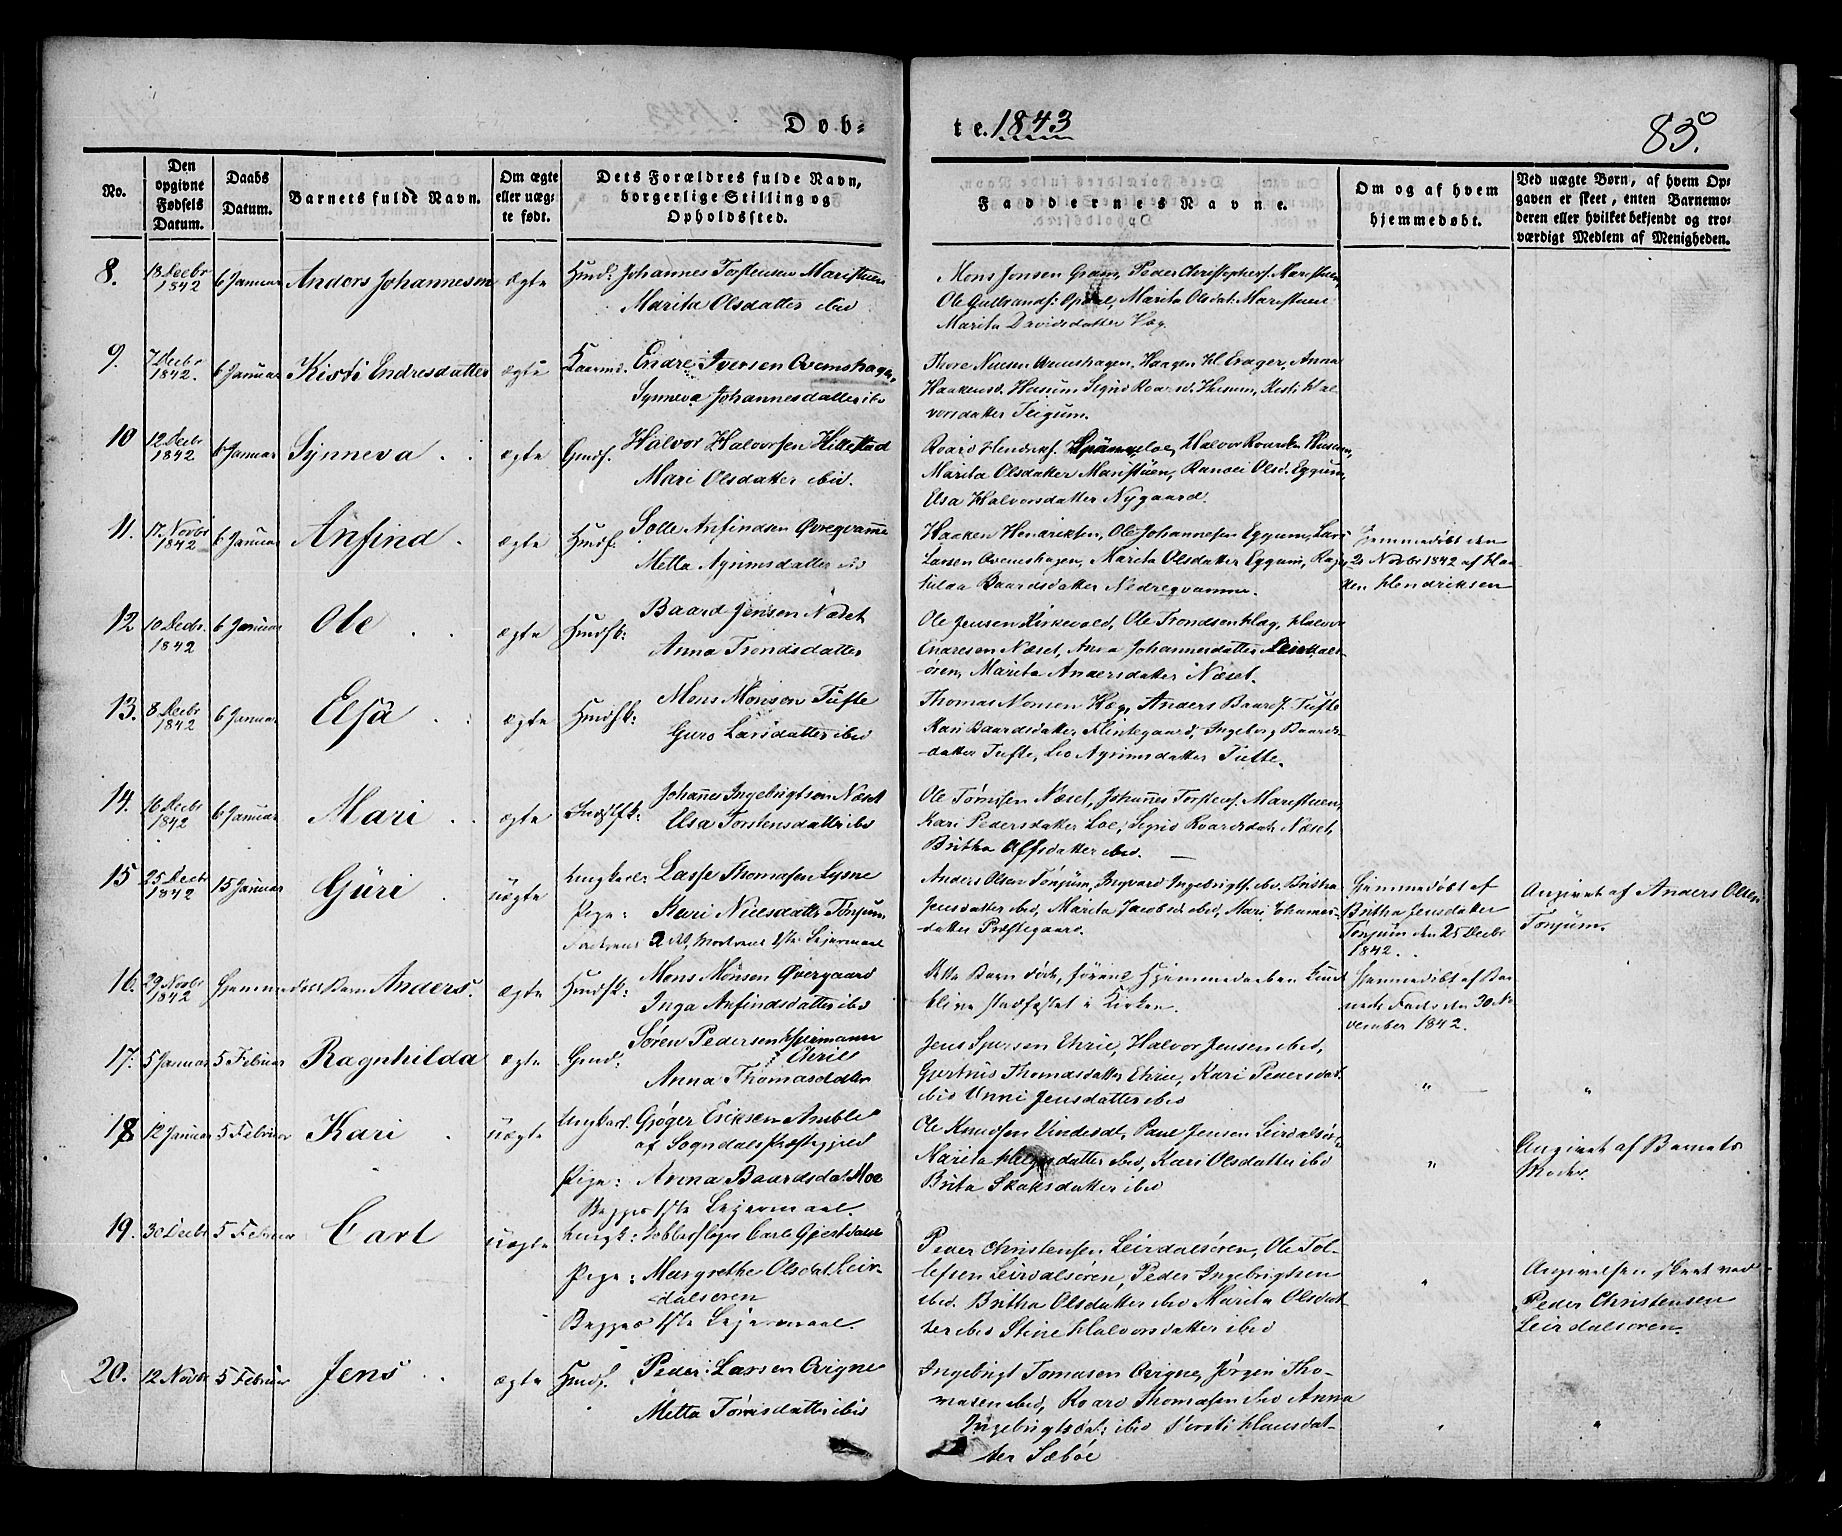 Døb-
te. 1843
83.
No.
Den opgivne Fødsels Datum.
Daabs Datum.
Barnets fulde Navn.
Om ægte eller uæg- te født.
Dets Forældres fulde Navn, borgerlige Stilling og Opholdssted.
Faddernes Navne.
Om og af hvem hjemmedøbt.
Ved uægte Børn, af hvem Op- gaven er skeet, enten Barnemo- deren eller hvilket bekjendt og tro- værdigt Medlem af Menigheden.
8. 13 Decbr 1842 6 Januar Anders Johannesen ægte Huusm: Johannes Torstensen Maristuen
Marita Olsdatter ibid
Mons Jensen Gram, Peder Christophers. Maristuen,
Ole Gulbrands: Opdal, Marita Olsdat: Maristuen
Marita Davidsdatter Hæg
9. 7 Decbr 1842. 6 Januar Kisti Endresdatter ægte Endre Iversen Ovenshagen,
Synneva Johannesdatter ibid
Thore Nilsen Ovenshagen, Haagen Erager, Anna
Haakensd. Husum, Sigrid Roarsd. Husum, Kesti Hal-
vorsdatter Teigum.
10 12 Decbr 1842 6 Januar Synneva ægte Gmdf. Halvor Halvorsen Hillestad
Mari Olsdatter ibid.
Roard Hendriks. Loe, Halvor Roardsen Husum,
Marita Olsdatter Maristuen, Ranvei Olsd. Eggum,
Elsa Halvorsdatter Nygaard.
11. 17 Novbr 1842 6 Januar Anfind ægte Hmdf. Solle Anfindsen Øvreqvamme
Metta Agrimsdatter ibid
Haaken Henriksen, Ole Johannesen Eggum, Lars
Larsen Ovenshagen, Marita Olsdatter Eggum, Ragn-
hilda Baardsdatter Nedreqvamme.
Hjemmedøbt den
2 Novbr 1842 af Haa-
ken Hendriksen
12 10 Decbr. 1842 6 Januar Ole ægte Hmdfk: Baard Jensen Næset
Anna Trondsdatter
Ole Jensen Kirkevold, Ole Trondsen Hag, Halvor
Endresen Næset, Anna Johannesdatter Leirdals-
ören, Marita Andersdatter Næset.
13. 8 Decbr 1842 6 Januar Elsa ægte Hmdfk: Mons Monsen Tufte
Guro Larsdatter ibid
Thomas Monsen Hæg, Anders Baards. Tufte
Kari Baardsdatter Klintegaard, Ingeborg Baards-
datter Tufte, Agrimsdatter Tufte.
14. 16 Decbr 1842 6 Januar Mari ægte Indstfk: Johannes Ingebrigtsen Næset
Elsa Torstensdatter ibid
Ole Tørrisen Næset, Johannes Torstens. Maristuen,
Kari Pedersdatter Loe, Sigrid Roardsdat. Næset,
Britha Olfsdatter ibid.
15 25 Decbr 1842 15 Januar Güri uægte Ungkarl: Lasse Thomasen Lysne
Pige: Kari Nielsdatter Tønjum
Faderens 2 det, Moderens 1ste Leiermaal
Anders Olsen Tønjum, Ingvard Ingebrigts. ibid, Britha
Jensdatter ibid, Marita Jacobsd ibid, Mari Johannes-
datter Præstegaard.
Hjemmedøbt af
Britha Jensdatter
Tønjum den 25 Decbr
1842.
Angivet af Anders Olsen
Tonjum.
16. 29 Novbr 1842 Hjemmedøbt Barn Anders. ægte Hmdfk: Mons Monsen Øvregaard
Inga Anfindsdatter ibid
Dette Barn døde, førend Hjemmedaaben kunde
blive stadfæstet i Kirken.
Hjemmedøbt af Bar-
nets Fader den 30 No-
vember 1842.
17. 5 Januar 5 Februar Ragnhilda ægte Gmd: Søren Pedersen Hjermann
Ehrie
Anna Thomasdatter
Jens Spersen Ehrie, Halvor Jensen ibid,
Gjertrud Thomasdatter Ehrie, Kari Pedersdat.
ibid Unni Jensdatter ibid
" "
18 12 Januar 5 Februar Kari uægte Ungkarl: Gjøger Eriksen Amble
af Sogndals Præstegjeld
Pige: Anna Baardsdat. Moe
Begges 1ste Leiermaal.
Ole Knudsen Vindedal, Paul Jensen Leirdalsør,
Marita Helgesdatter ibid, Kari Olsdatter ibid
Brita Skaksdatter ibid
"
Angivet af Barnets
Moder.
19. 30 Decbr 5 Februar Carl uægte Ungk: Kobberslager Carl Gjestdahl
Pige: Margrethe Olsdat. Leir-
dalsören
Begges 1ste Leiermaal.
Peder Christensen Leirdalsören, Ole Tol-
lefsen Leirdalsören, Peder Ingebrigtsen
ibid. Britha Olsdatter ibid Marita Olsdat-
ter ibid Stine Halvorsdatter ibid
"
Angivelsen skeet ved
Peder Christensen
Leirdalsören.
20. 12 Novbr 5 Februar Jens ægte Hmdf. Peder Larsen Ovigne
Metta Tørrisdatter ibid
Ingebrigt Tomasen Ovigne, Jørgen Tho-
masen ibid, Roard Thomasen ibid Anna
Ingebrigtsdat: ibid Kersti Klausdat-
ter Sæbøe
" "